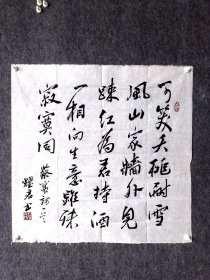 可笑夭桃耐雪
風山家牆外見
踈紅為君持酒
一相向生意雖殊
寂寞同 蔡襄詩
書